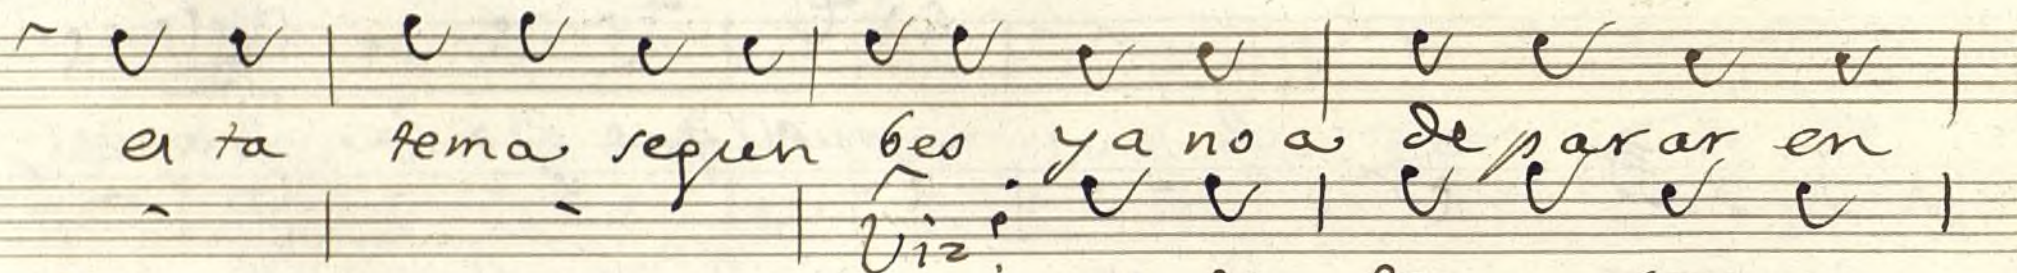 esta tema segun bes ya no a de parar en
Viz: